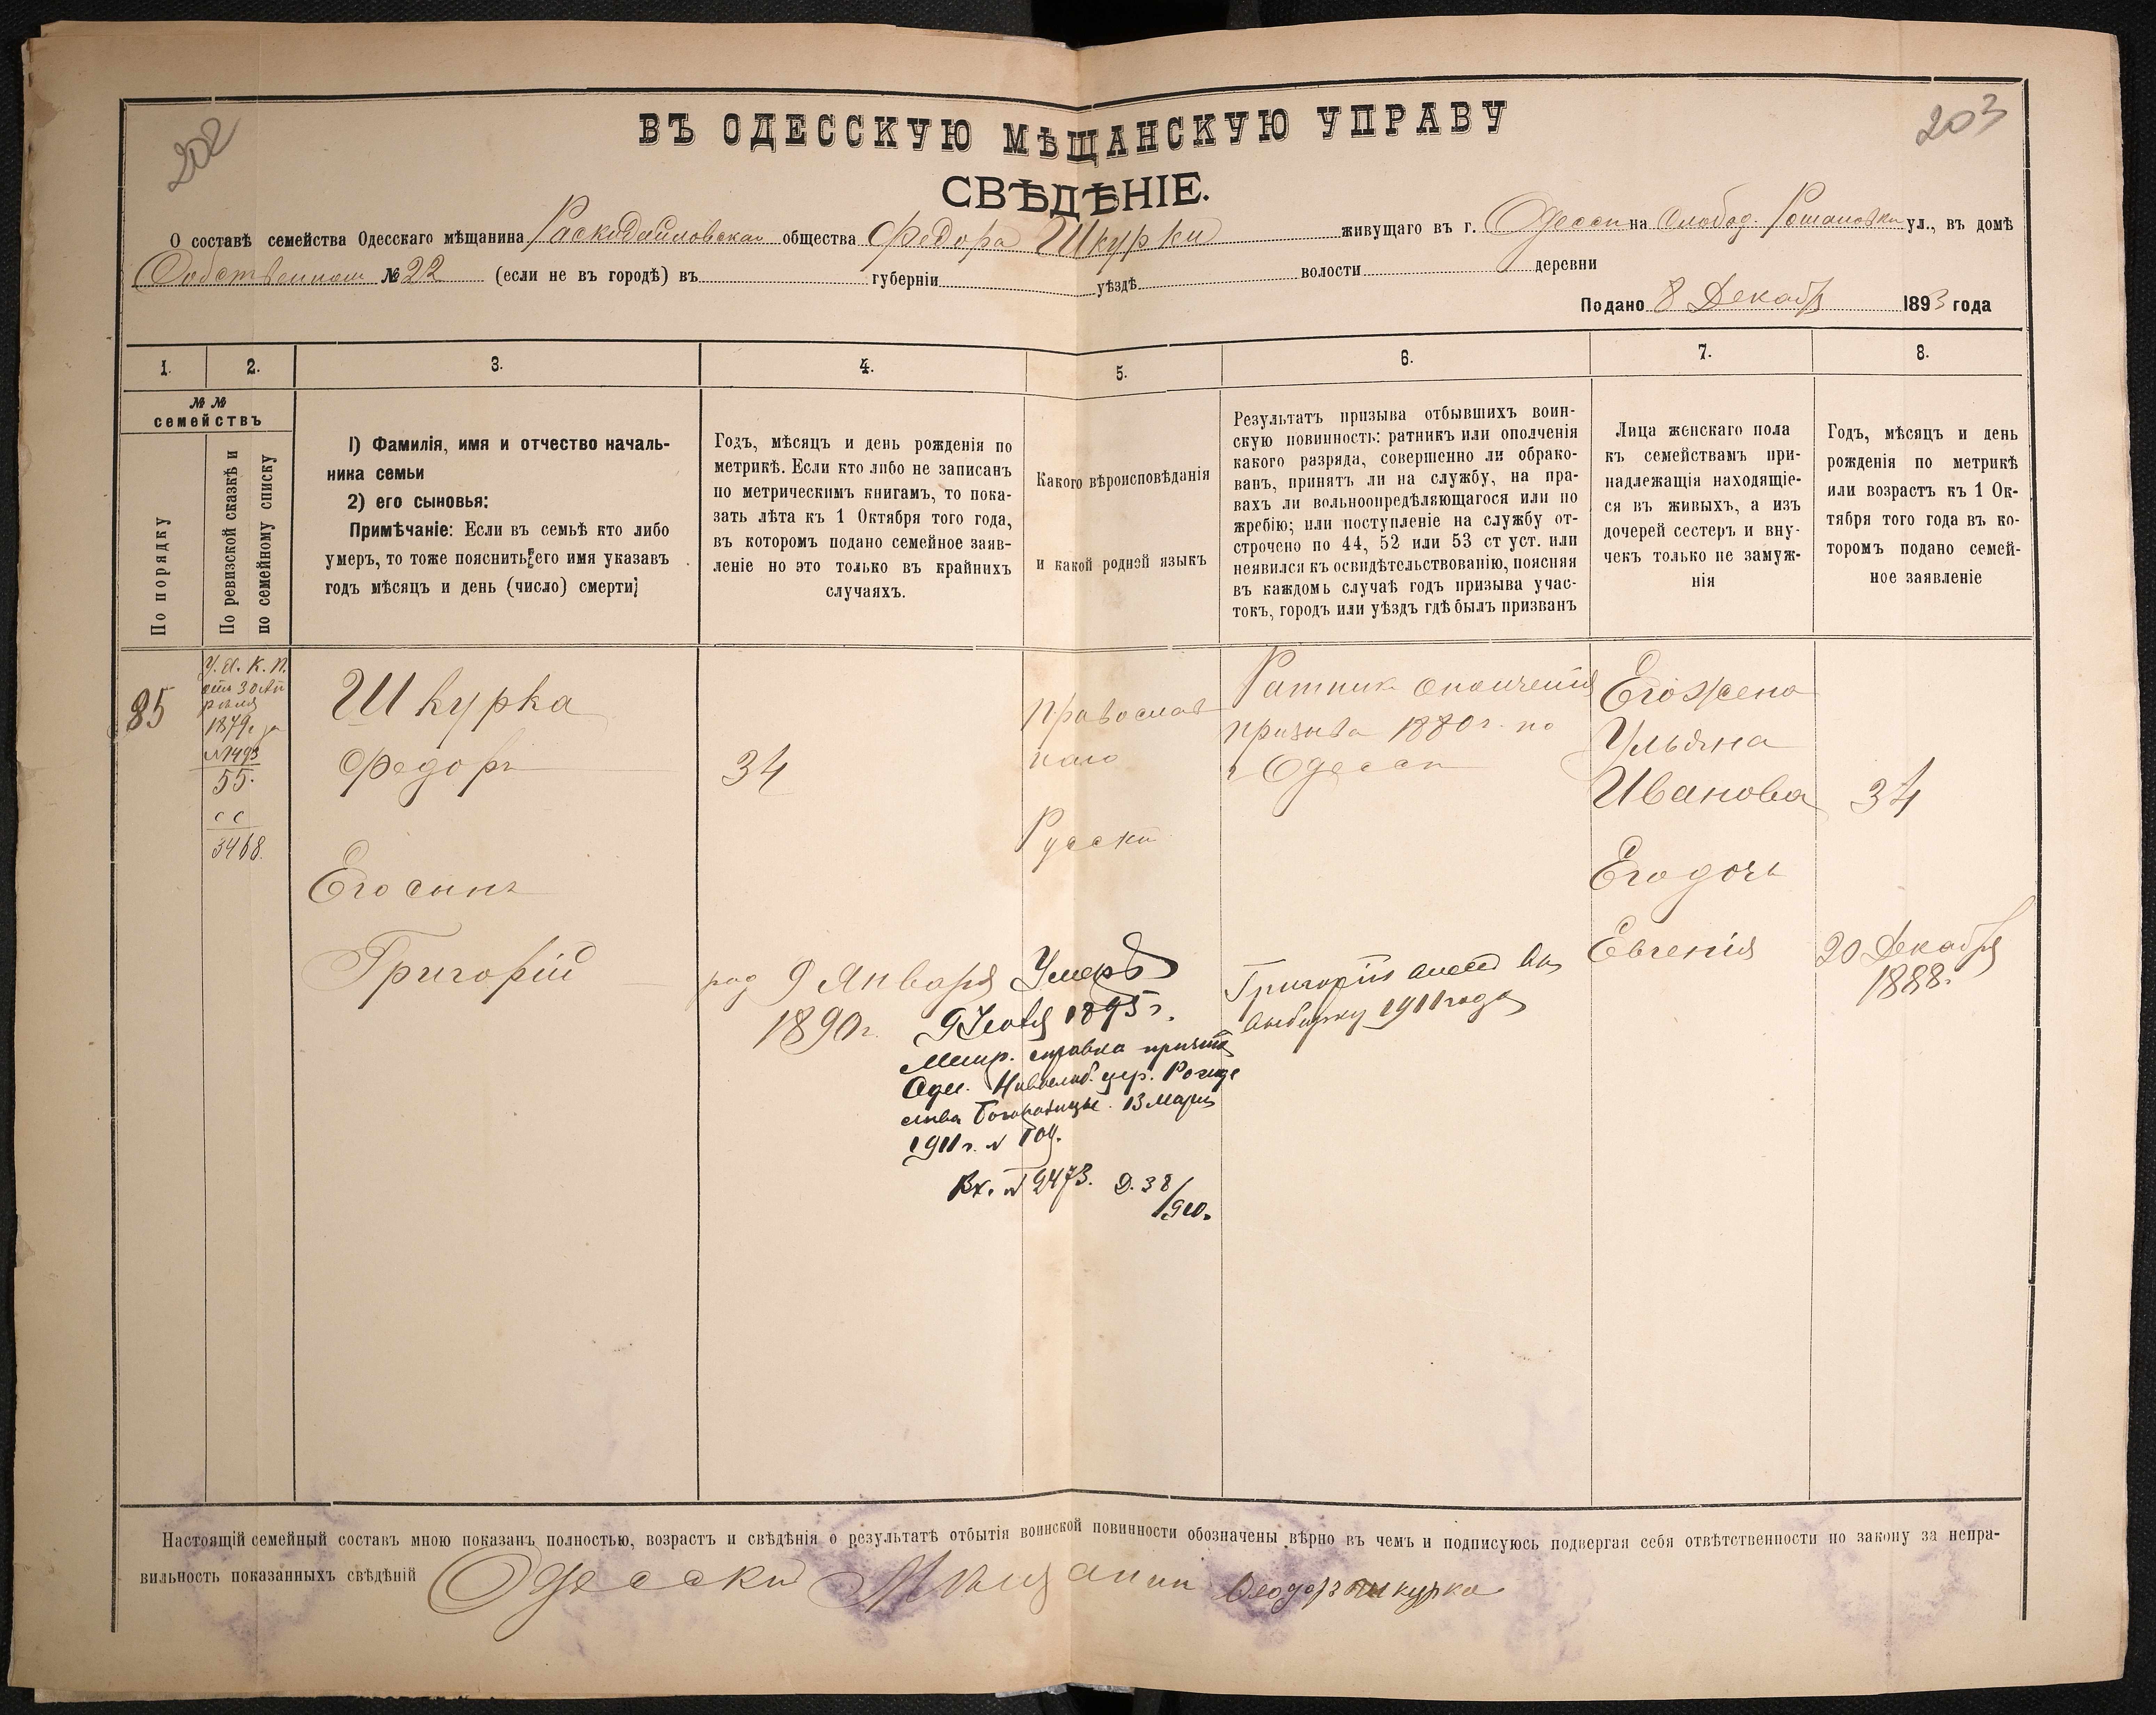 202
203
ВЪ ОДЕССКУЮ МѢЩАНСКУЮ УПРАВУ
СВѢДѢНІЕ.
О составѣ семейства Одесскаго мѣщанина Раскидайловскаго общества Федора Шкурки живущаго въ г. Одессѣ на Слобод. Романовки ул., въ домѣ
Собственном № 22 (если не въ городѣ) въ губерніи уѣздѣ волости деревни
Подано 8 Декабр 1893 года
1.
2.
3.
4.
5.
6.
7.
8.
№ №
семействъ
По порядку
По ревизской сказкѣ и
по семейному списку
1) Фамилія, имя и отчество началь-
ника семьи
2) его сыновья:
Примѣчаніе: Если въ семьѣ кто либо
умеръ, то тоже пояснить его имя указавъ
годъ мѣсяцъ и день (число) смерти;
Годъ, мѣсяцъ и день рожденія по
метрикѣ. Если кто либо не записанъ
по метрическимъ книгамъ, то пока-
зать лѣта къ 1 Октября того года,
въ которомъ подано семейное заяв-
леніе но это только въ крайнихъ
случаяхъ.
Какого вѣроисповѣданія
и какой родной языкъ
Результатъ призыва отбывшихъ воин-
скую повинность: ратникъ или ополченія
какого разряда, совершенно ли обрако-
ванъ, принятъ ли на службу, на пра-
вахъ ли вольноопредѣляющагося или по
жребію; или поступленіе на службу от-
строчено по 44, 52 или 53 ст уст. или
неявился къ освидѣтельствованію, поясняя
въ каждомъ случаѣ годъ призыва учас-
токъ, городъ или уѣздъ гдѣ былъ призванъ
Лица женскаго пола
къ семействамъ при-
надлежащія находящіе-
ся въ живыхъ, а изъ
дочерей сестеръ и вну-
чекъ только не замуж-
нія
Годъ, мѣсяцъ и день
рожденія по метрикѣ
или возрастъ къ 1 Ок-
тября того года въ ко-
торомъ подано семей-
ное заявленіе
85
У. К. П.
отъ 30 Ап
рѣля
1879г за
№ 1493
55.
с с
3468.
Шкурка
Федоръ
34
Православ
наго
Русскій
Ратник ополченія
призыва 1880г. по
г Одессѣ
Его жена
Ульяна
Иванова
34
Его сынъ
Григорій
род 9 Января
1890г.
Его дочь
Евгенія
20 Декабря
1888.
Умеръ
9 Іюля 1895г.
Метр. справка причта
Одес. Новослоб. цер. Рожде
ства Богородицы. 13 Марта
1911г. №
Вх. № 2473. Д. 38/910.
Григорій
выборку 1911 года
Настоящій семейный составъ мною показанъ полностью, возрастъ и свѣдѣнія о результатѣ отбытія воинской повинности обозначены вѣрно въ чемъ и подписуюсь подвергая себя отвѣтственности по закону за непра-
вильность показанныхъ свѣдѣній Одесскій Мѣщанин Феодоръ Шкурка